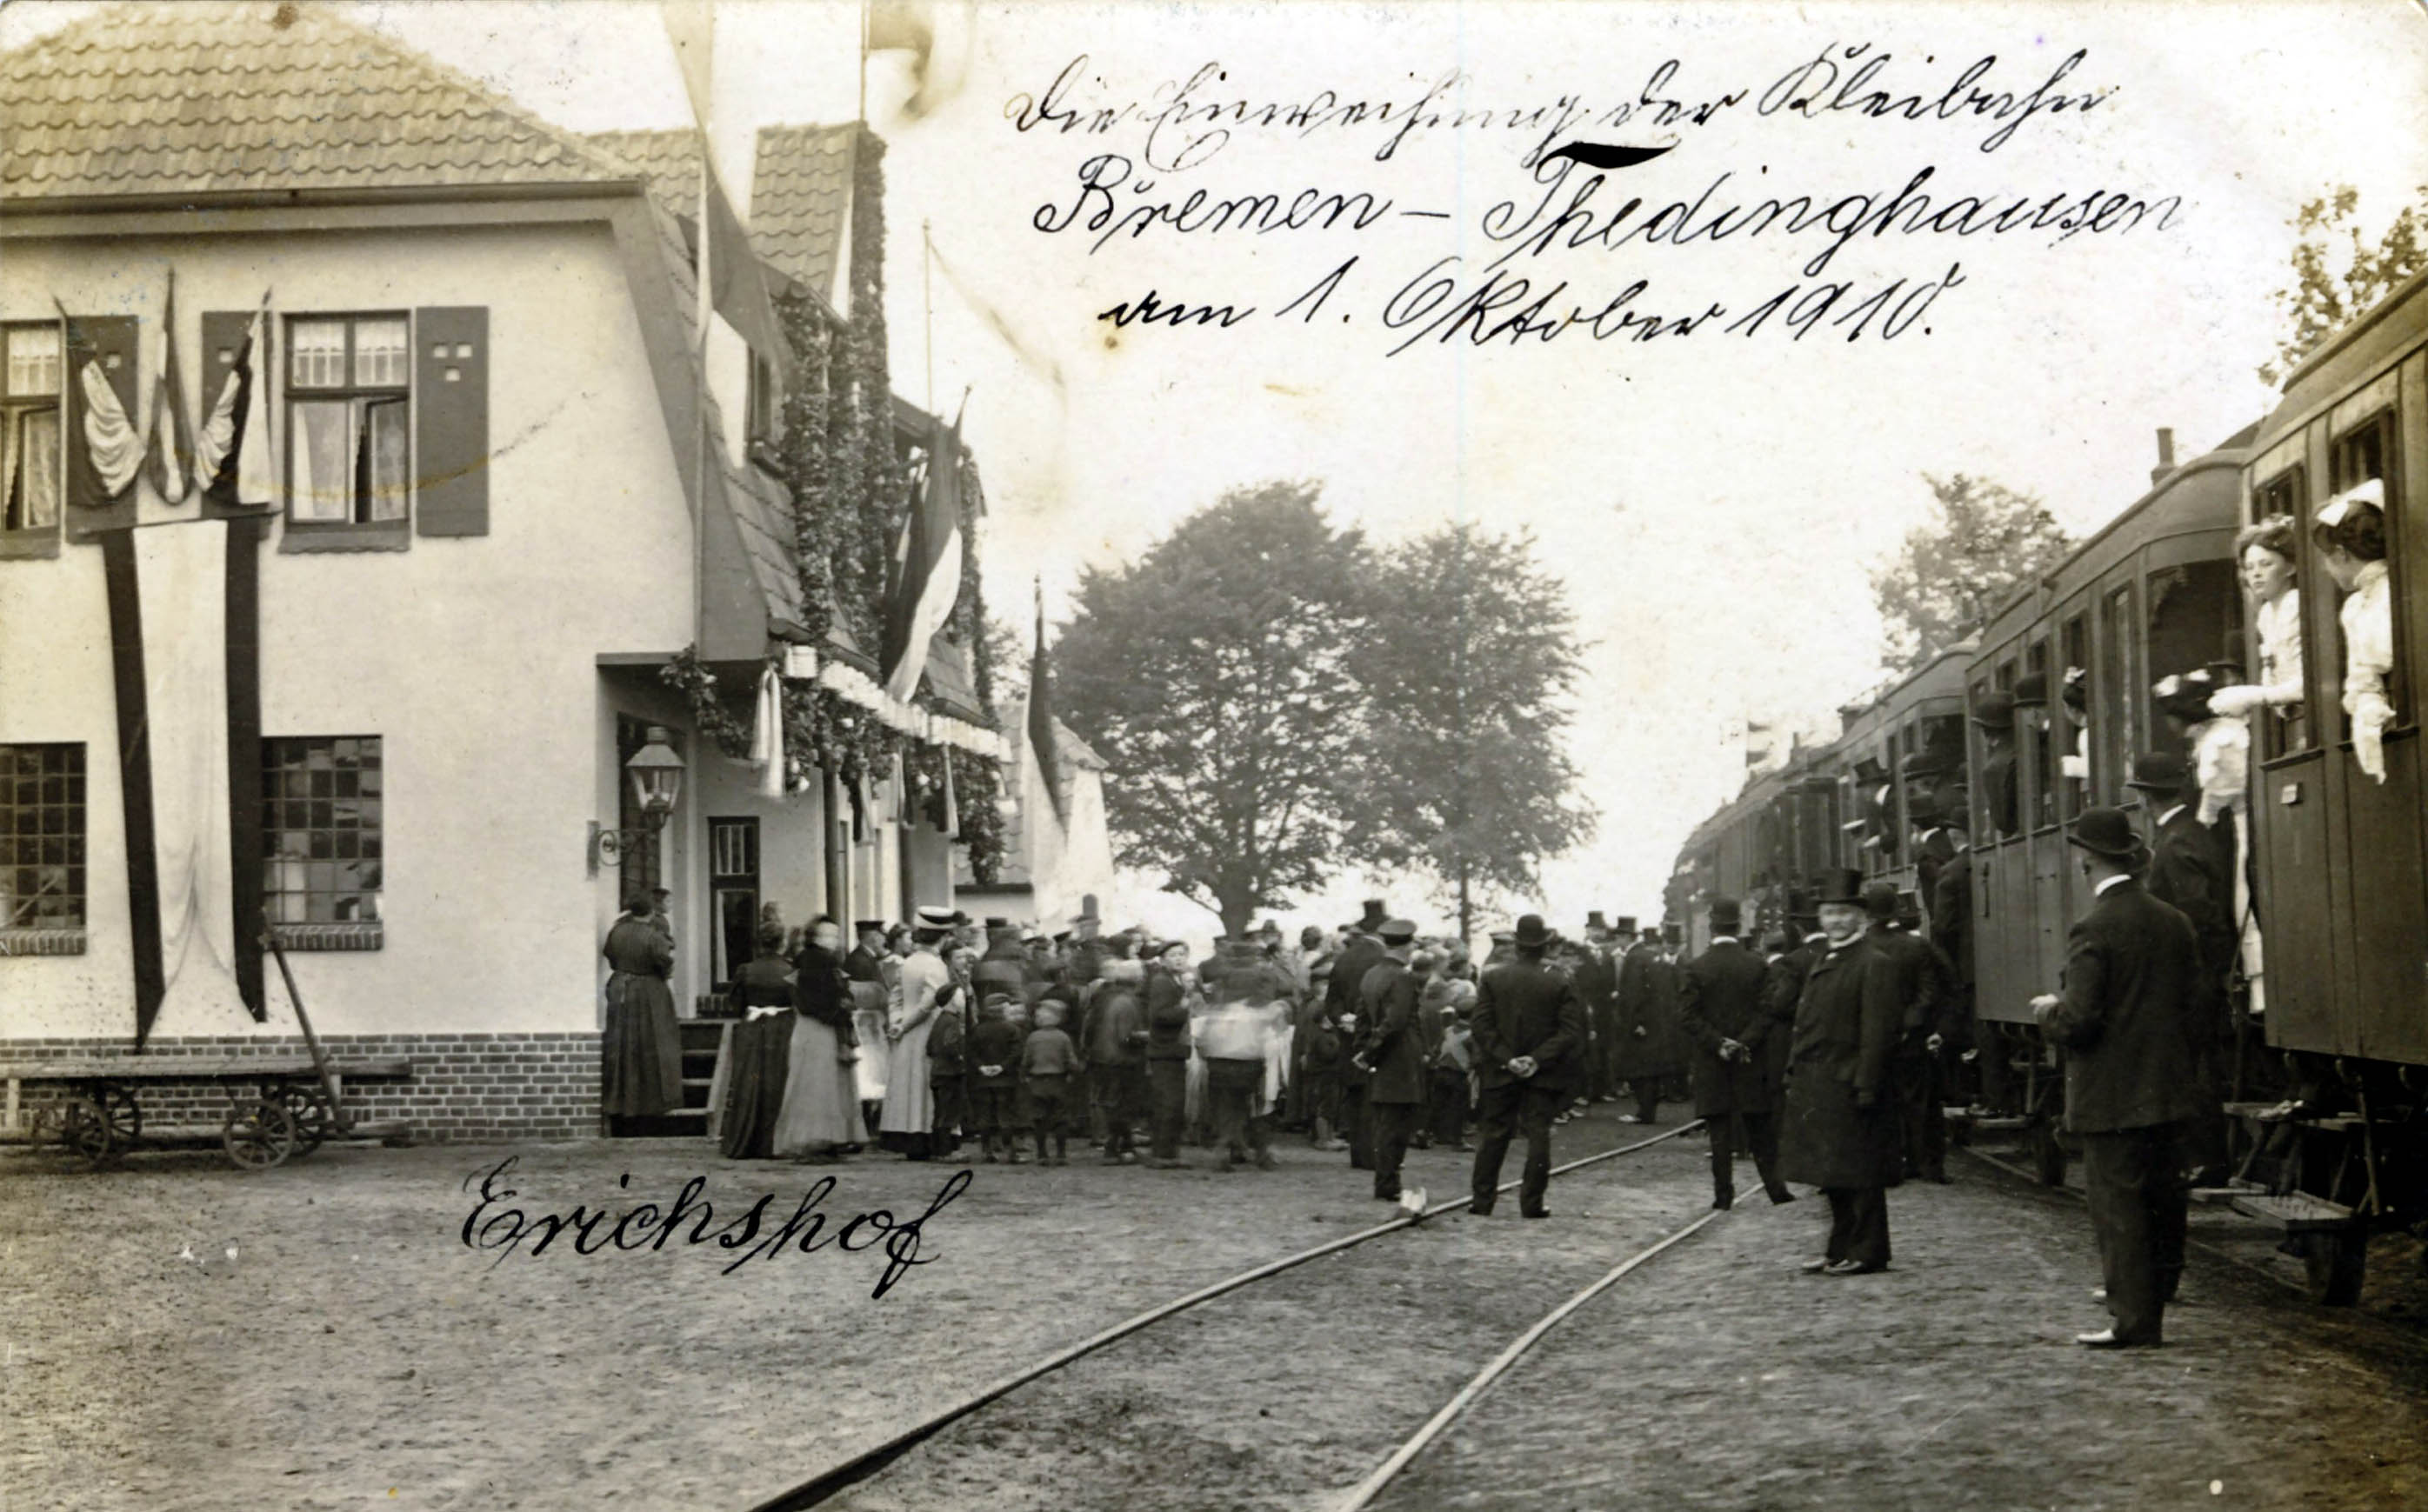 Die Einweihung der Kleibahn
Bremen – Thedinghausen
am 1. Oktober 1910.
Erichshof